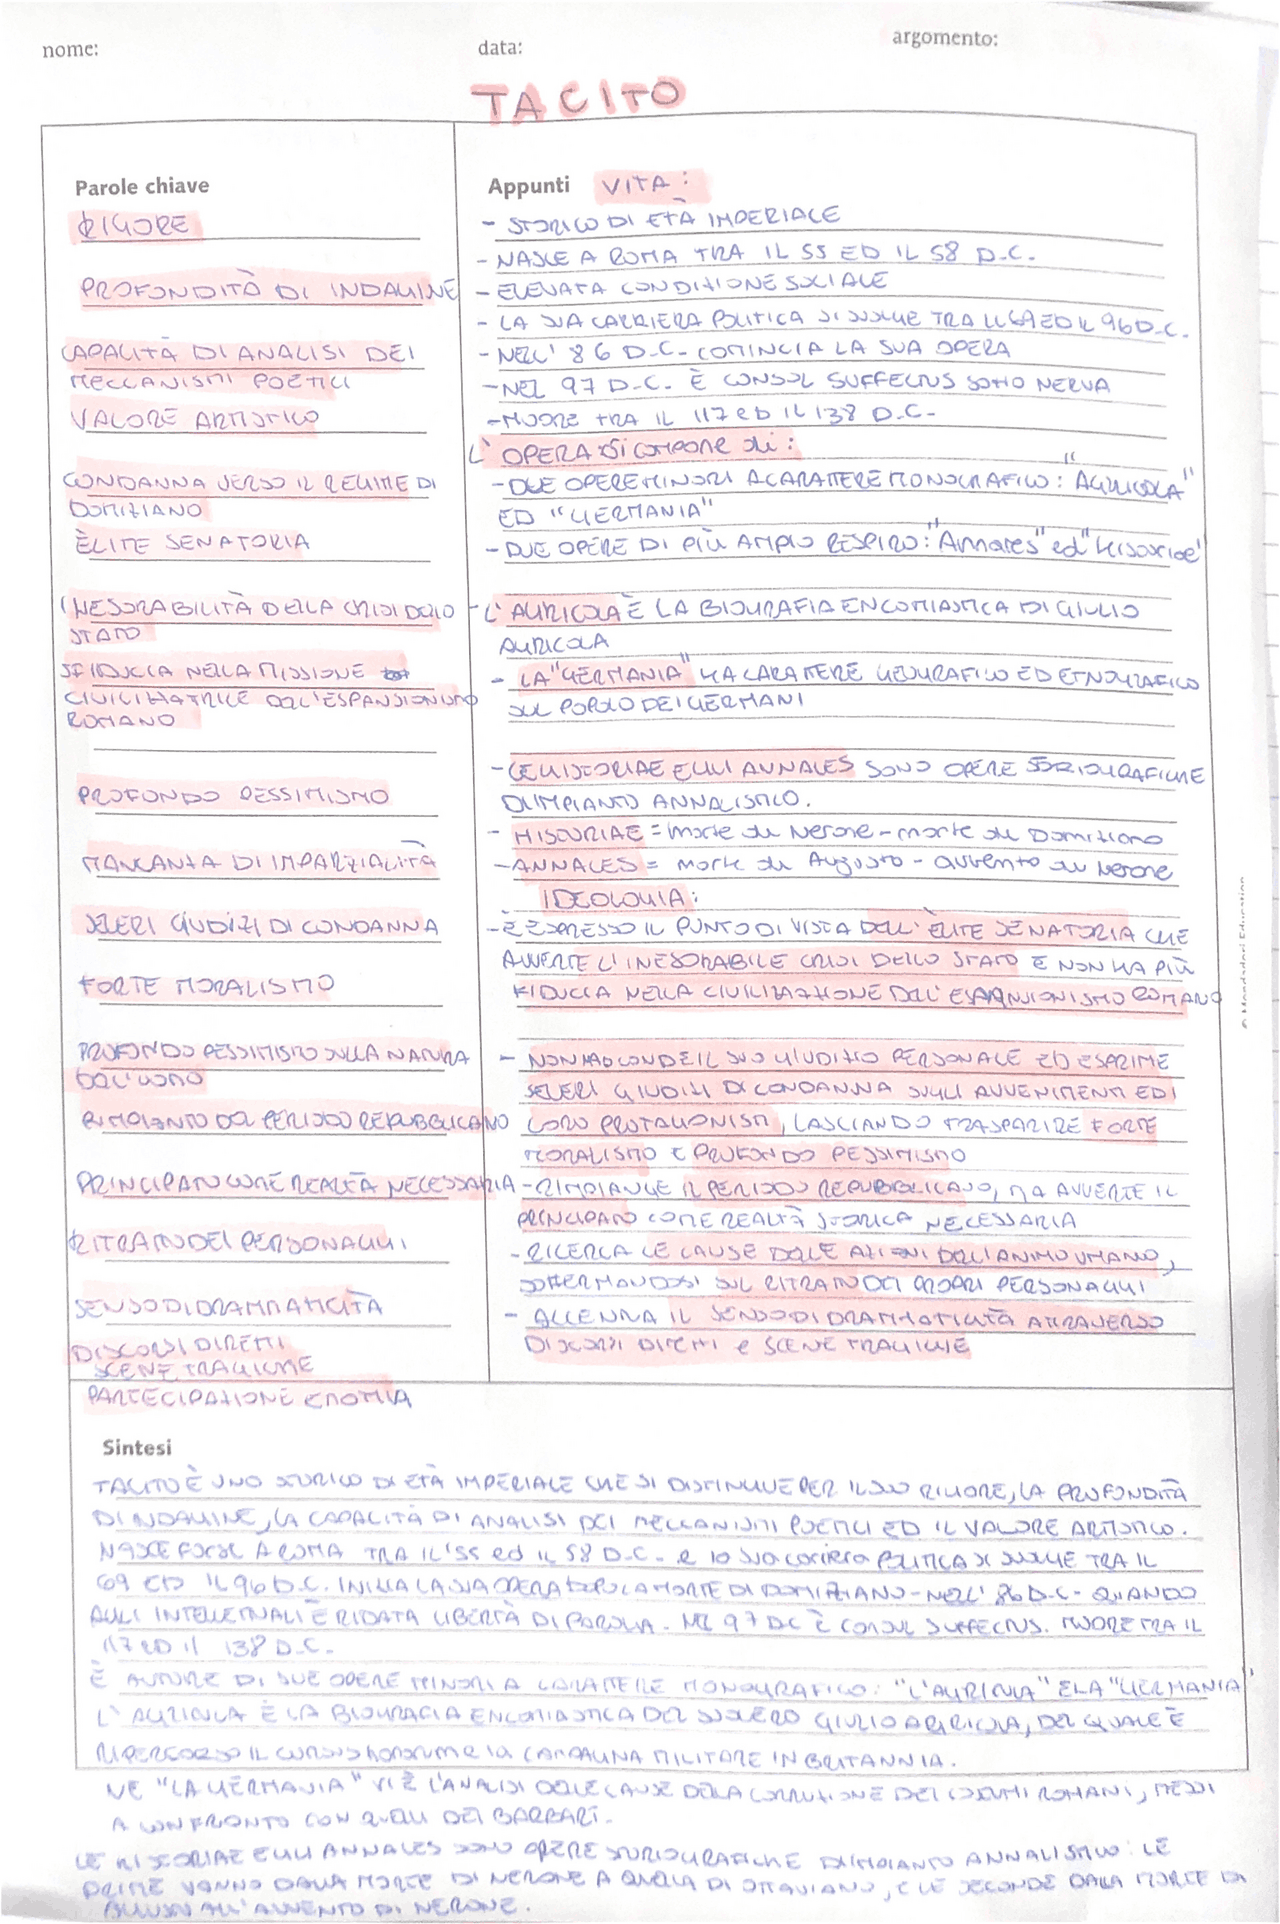 nome:
data:
argomento:
TACITO
Parole chiave
RIGORE
PROFONDITÀ DI INDAGINE
CAPACITÀ DI ANALISI DEI
MECCANISMI POETICI
VALORE ARTISTICO
CONDANNA VERSO IL REGIME DI
DOMIZIANO
ÈLITE SENATORIA
INESORABILITÀ DELLA CRISI DELLO
STATO
SFIDUCIA NELLA MISSIONE
CIVILIZZATRICE DELL'ESPANSIONISMO
ROMANO
PROFONDO PESSIMISMO
MANCANZA DI IMPARZIALITÀ
SEVERI GIUDIZI DI CONDANNA
FORTE MORALISMO
PROFONDO PESSIMISMO SULLA NATURA
DELL'UOMO
RIMPIANTO DEL PERIODO REPUBBLICANO
PRINCIPATO COME REALTÀ NECESSARIA
RITRATTO DEI PERSONAGGI
SENSO DI DRAMMATICITÀ
DISCORSI DIRETTI
SCENE TRAGICHE
PARTECIPAZIONE EMOTIVA
Appunti VITA:
- STORICO DI ETÀ IMPERIALE
- NASCE A ROMA TRA IL 55 ED IL 58 D.C.
- ELEVATA CONDIZIONE SOCIALE
- LA SUA CARRIERA POLITICA SI SVOLGE TRA IL 69 ED IL 96 D.C.
- NELL' 86 D.C. COMINCIA LA SUA OPERA
- NEL 97 D.C. È CONSOL SUFFECTUS SOTTO NERVA
- MUORE TRA IL 117 ED IL 138 D.C.
L'OPERA si compone di:
- DUE OPERE MINORI A CARATTERE MONOGRAFICO: "AGRICOLA"
ED "GERMANIA"
- DUE OPERE DI PIÙ AMPIO RESPIRO: "Annales" ed "Historiae"
- L'AGRICOLA È LA BIOGRAFIA ENCOMIASTICA DI GIULIO
AGRICOLA
- LA "GERMANIA" HA CARATTERE GEOGRAFICO ED ETNOGRAFICO
SUL POPOLO DEI GERMANI
- LE HISTORIAE E GLI ANNALES SONO OPERE STORIOGRAFICHE
D'IMPIANTO ANNALISTICO.
- HISTORIAE = morte di Nerone - morte di Domiziano
- ANNALES = morte di Augusto - avvento di Nerone
IDEOLOGIA:
- È ESPRESSO IL PUNTO DI VISTA DELL'ÈLITE SENATORIA CHE
AVVERTE L'INESORABILE CRISI DELLO STATO E NON HA PIÙ
FIDUCIA NELLA CIVILIZZAZIONE DELL'ESPANSIONISMO ROMANO
- NON NASCONDE IL SUO GIUDIZIO PERSONALE ED ESPRIME
SEVERI GIUDIZI DI CONDANNA SUGLI AVVENIMENTI ED I
LORO PROTAGONISTI, LASCIANDO TRASPARIRE FORTE
MORALISMO E PROFONDO PESSIMISMO
- RIMPIANGE IL PERIODO REPUBBLICANO, MA AVVERTE IL
PRINCIPATO COME REALTÀ STORICA NECESSARIA
- RICERCA LE CAUSE DELLE AZIONI DELL'ANIMO UMANO,
SOFFERMANDOSI SUL RITRATTO DEI PROPRI PERSONAGGI
- ACCENNA IL SENSO DI DRAMMATICITÀ ATTRAVERSO
DISCORSI DIRETTI e SCENE TRAGICHE
© Mondadori Education
Sintesi
TACITO È UNO STORICO DI ETÀ IMPERIALE CHE SI DISTINGUE PER IL SUO RIGORE, LA PROFONDITÀ
DI INDAGINE, LA CAPACITÀ DI ANALISI DEI MECCANISMI POETICI ED IL VALORE ARTISTICO.
NASCE FORSE A ROMA TRA IL 55 ed IL 58 D.C. e la sua carriera POLITICA SI SVOLGE TRA IL
69 ED IL 96 D.C. INIZIA LA SUA OPERA DOPO LA MORTE DI DOMIZIANO - NELL' 86 D.C - QUANDO
AGLI INTELLETTUALI È RIDATA LIBERTÀ DI PAROLA. NEL 97 DC È CONSUL SUFFECTUS. MUORE TRA IL
117 ED IL 138 D.C.
È AUTORE DI DUE OPERE MINORI A CARATTERE MONOGRAFICO: "L'AGRICOLA" E LA "GERMANIA"
L'AGRICOLA È LA BIOGRAFIA ENCOMIASTICA DEL SUOCERO GIULIO AGRICOLA, DEL QUALE È
RIPERCORSO IL CURSUS honorum e la CAMPAGNA MILITARE IN BRITANNIA.
NE "LA GERMANIA" VI È L'ANALISI DELLE CAUSE DELLA CORRUZIONE DEI COSTUMI ROMANI, MESSI
A CONFRONTO CON QUELLI DEI BARBARI.
LE HISTORIAE E GLI ANNALES SONO OPERE STORIOGRAFICHE D'IMPIANTO ANNALISTICO: LE
PRIME VANNO DALLA MORTE DI NERONE A QUELLA DI OTTAVIANO, E LE SECONDE DALLA MORTE DI
ALL'AVVENTO DI NERONE.